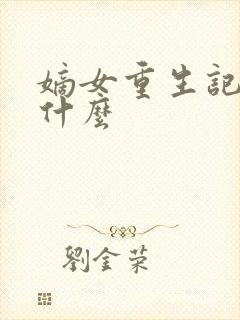 嫡女重生記
什麼
劉金榮